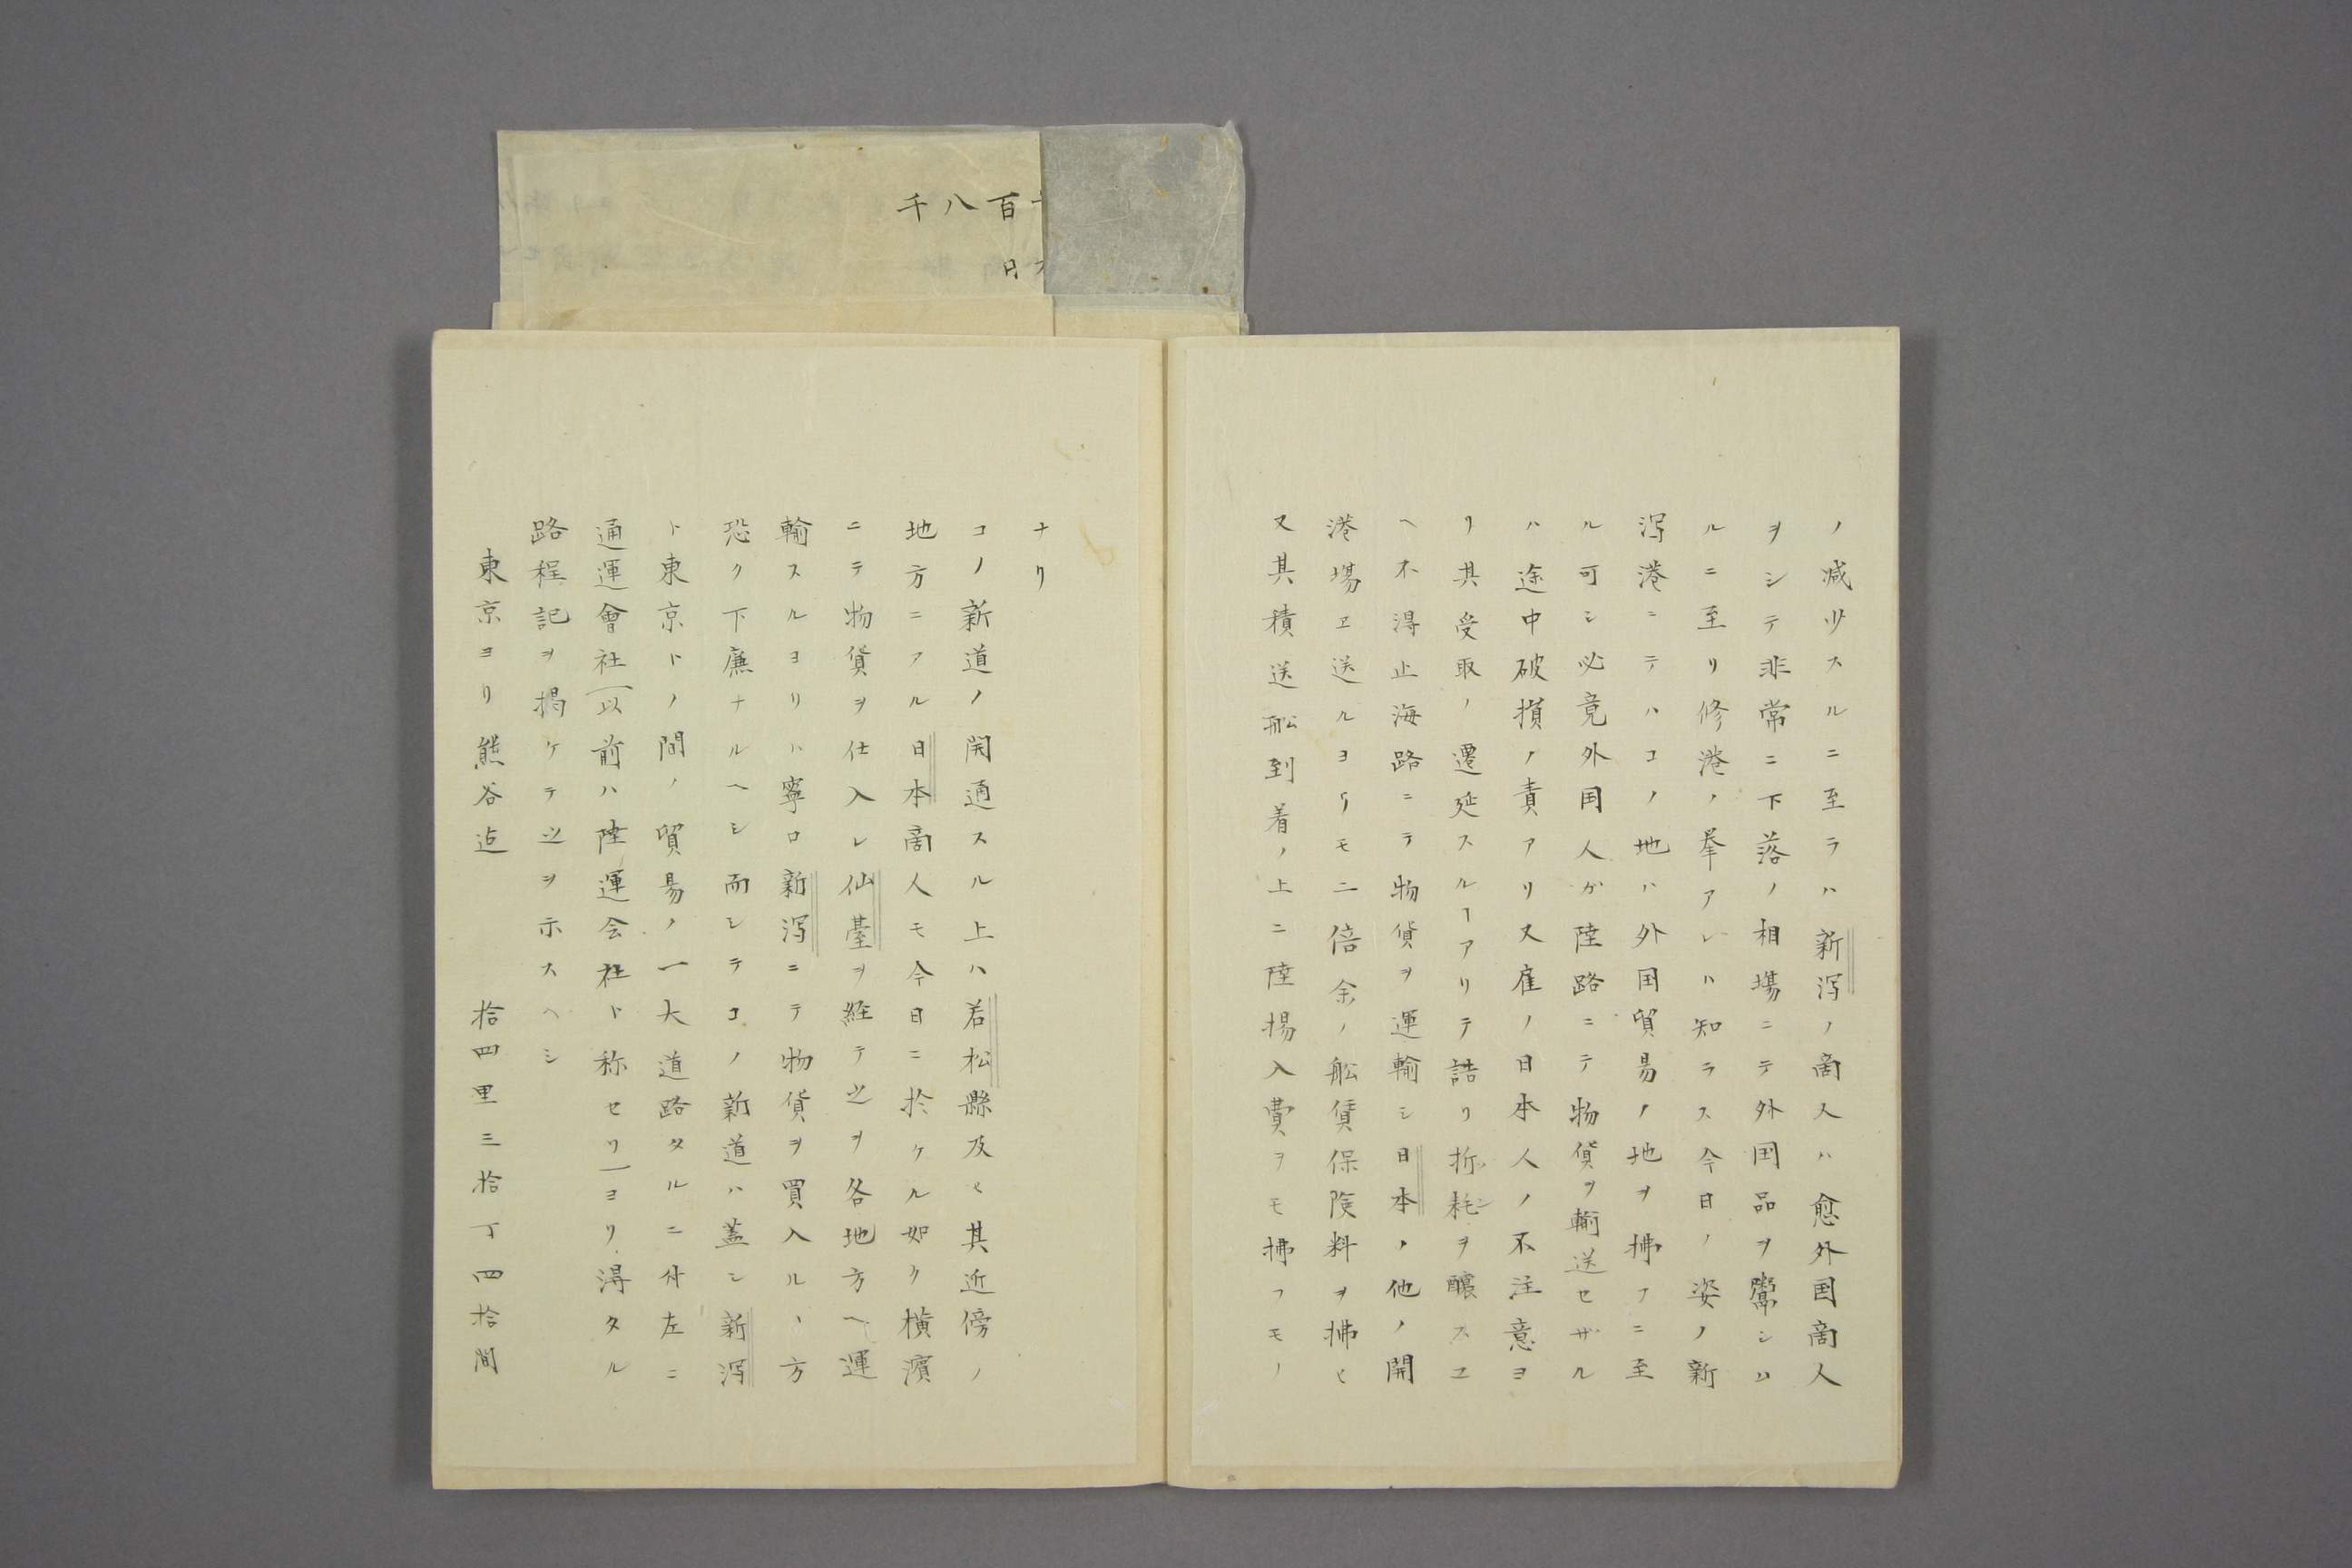 ノ減少スルニ至ラハ新潟ノ商人ハ愈外国商人
ヲシテ非常ニ下落ノ相場ニテ外国品ヲ鬻シム
ルニ至リ修港ノ挙アレハ知ラス今日ノ姿ノ新
潟港ニテハコノ地ハ外国貿易ノ地ヲ拂フニ至
ル可シ必竟外国人ガ陸路ニテ物貨ヲ輸送セザル
ハ途中破損ノ責アリ又雇ノ日本人ノ不注意ヨ
リ其受取ノ遷延スルヿアリテ詰リ折耗ヲ釀スユ
ヘ不得止海路ニテ物貨ヲ運輸シ日本ノ他ノ開
港場ヱ送ルヨリモ二倍余ノ舩賃保険料ヲ拂ヒ
又其積送舩到着ノ上ニ陸揚入費ヲモ拂フモノ
ナリ
コノ新道ノ開通スル上ハ若松縣及ヒ其近傍ノ
地方ニアル日本商人モ今日ニ於ケル如ク横濱
ニテ物貨ヲ仕入レ仙臺ヲ経テ之ヲ各地方ヘ運
輸スルヨリハ寧ロ新潟ニテ物貨ヲ買入ルヽ方
恐ク下廉ナルヘシ而シテコノ新道ハ蓋シ新潟
ト東京トノ間ノ貿易ノ一大道路タルニ付左ニ
通運會社(以前ハ陸運会社ト称セリ)ヨリ得タル
路程記ヲ掲ケテ之ヲ示スヘシ
東京ヨリ熊谷迠 拾四里三拾丁四拾間
千八百
日